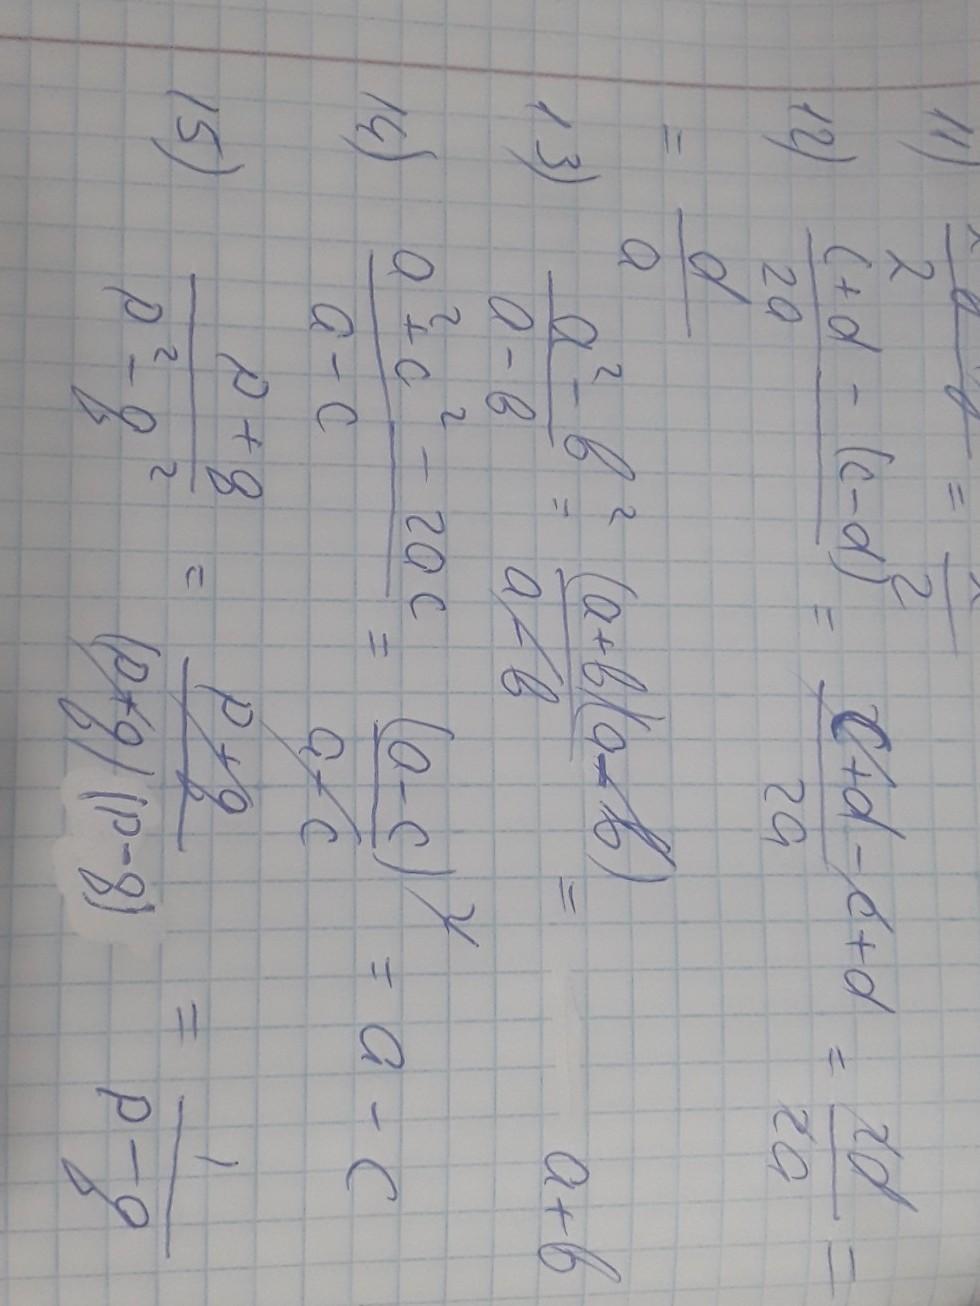 11) = 
12) (c+d-(c-d))/2a = (c+d-c+d)/2a = 2d/2a =
= d/a
13) (a²-b²)/(a-b) = ((a+b)(a-b))/(a-b) = a+b
14) (a²+c²-2ac)/(a-c) = (a-c)²/(a-c) = a-c
15) (p+q)/(p²-q²) = (p+q)/((p+q)(p-q)) = 1/(p-q)